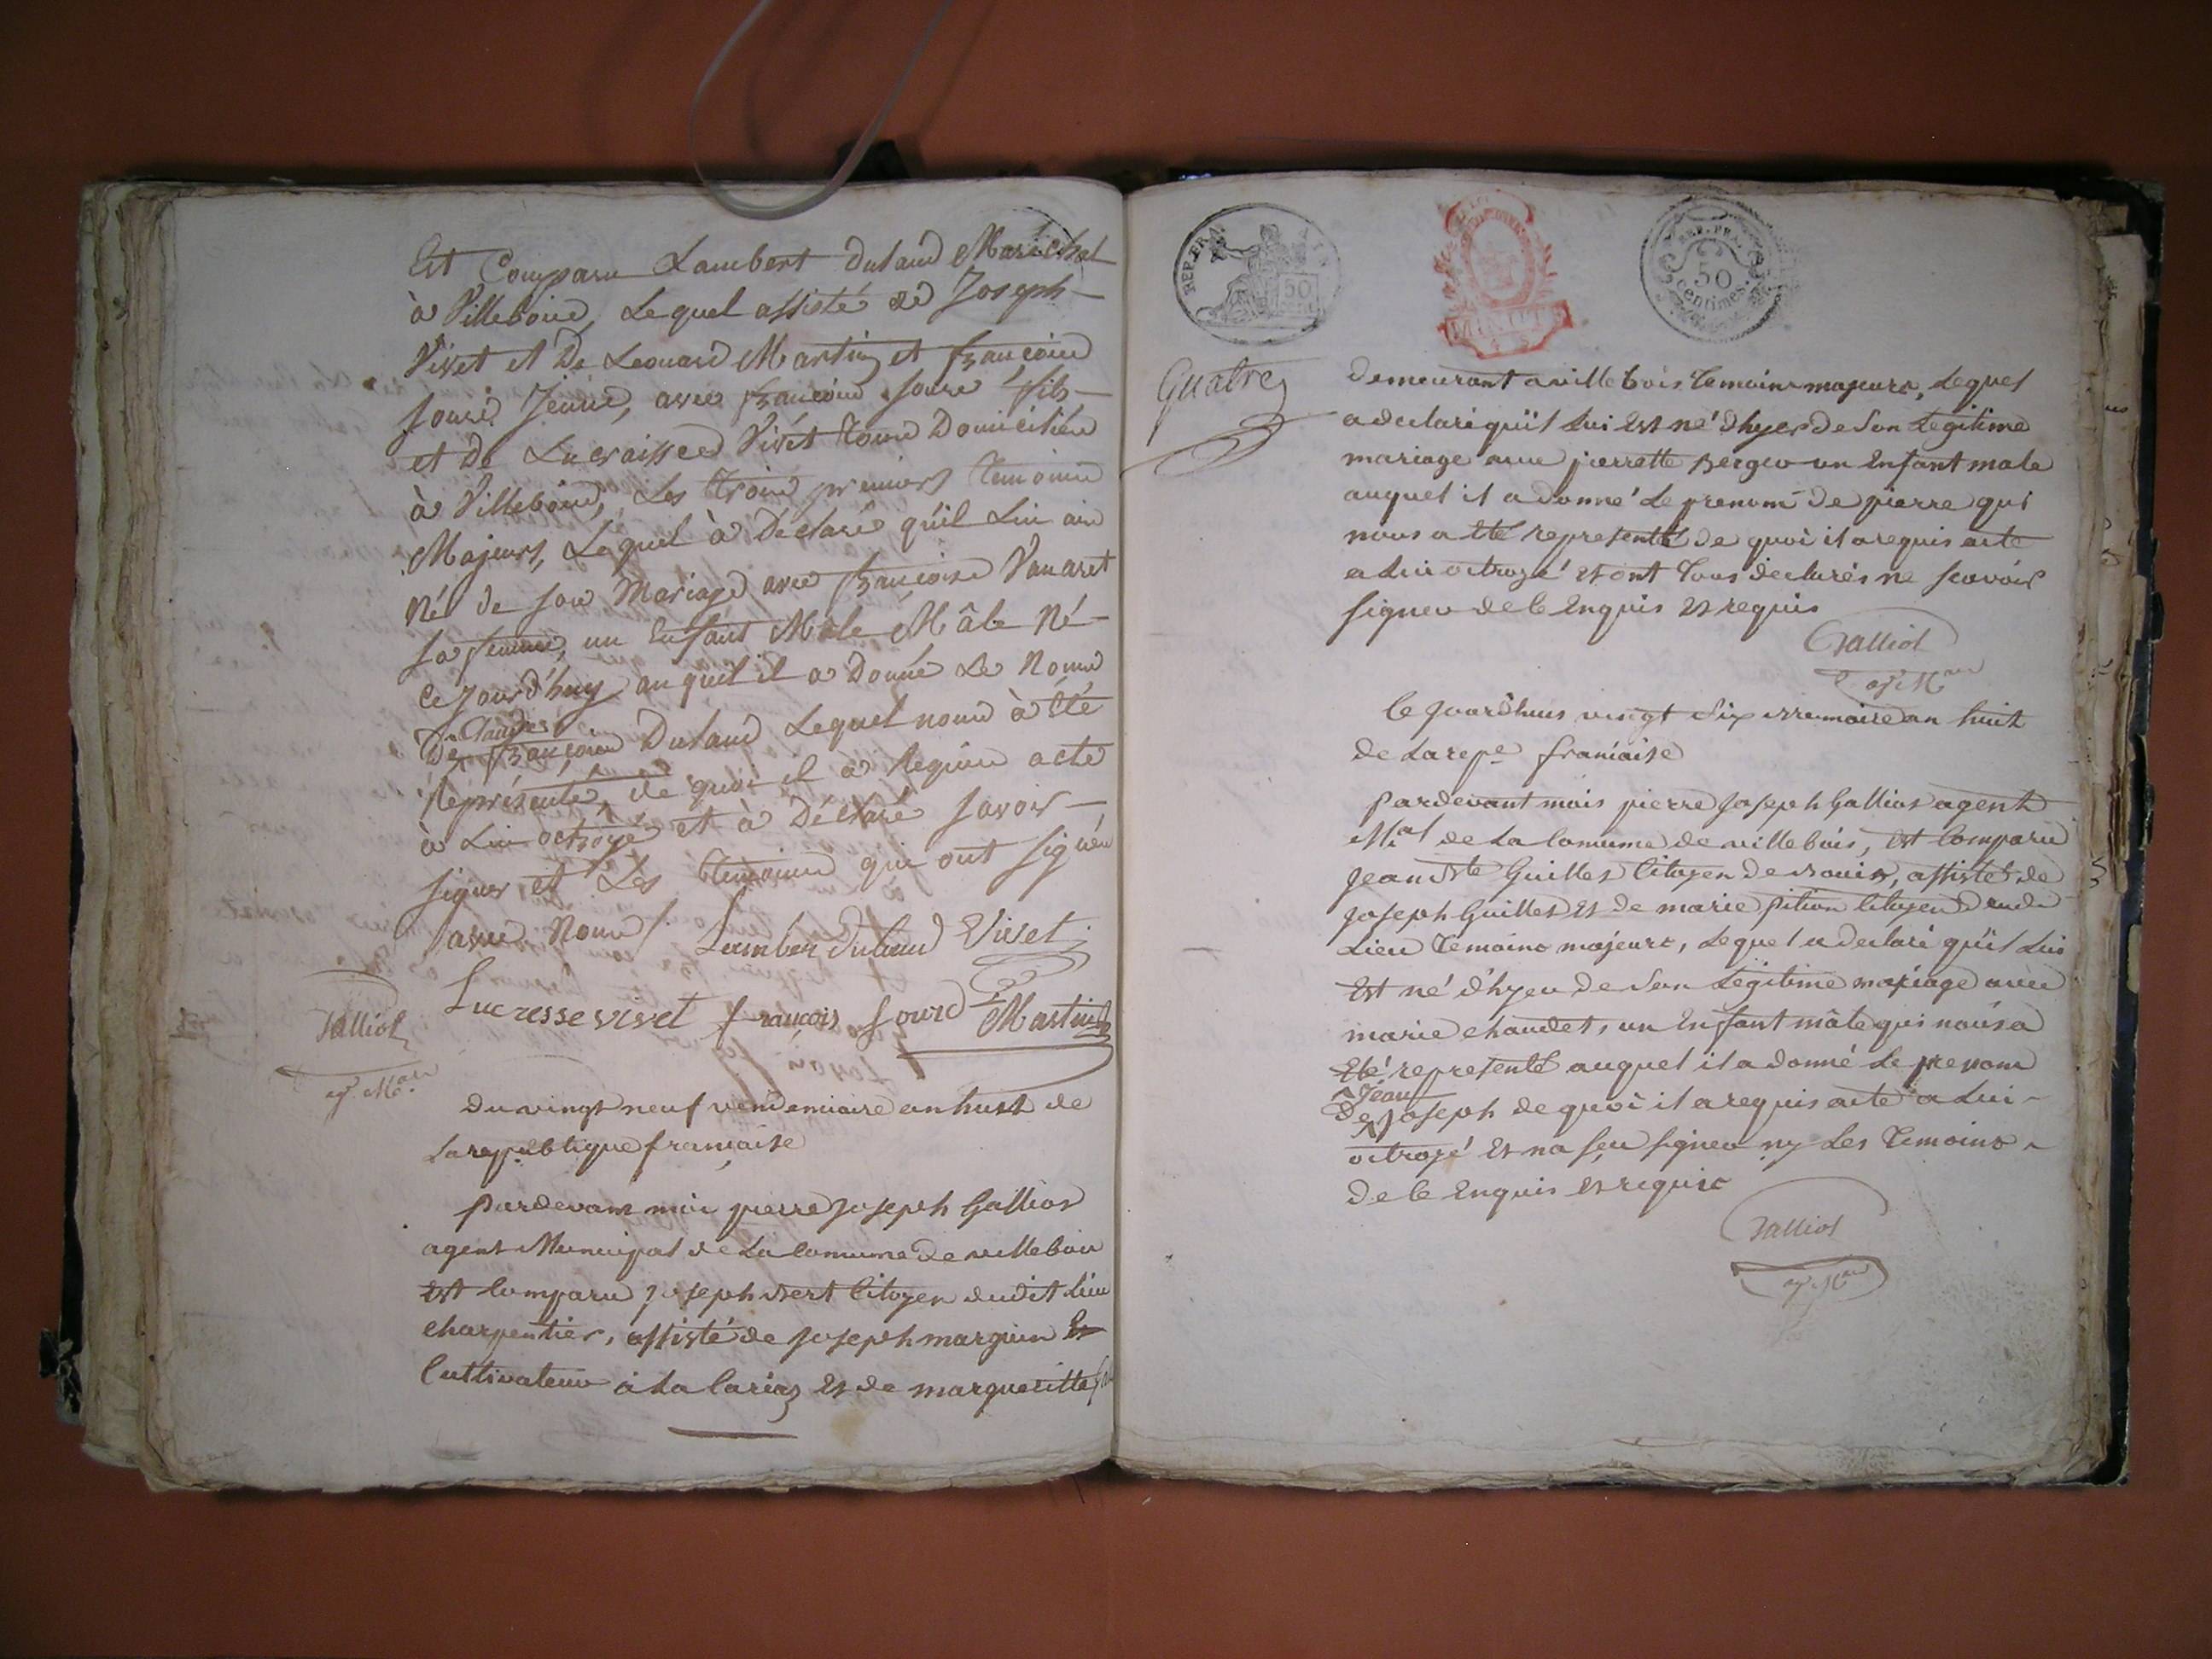 Est Comparu Lambert Dutaud Maréchal
à Villeboie, Lequel assisté de Joseph
Vivet et De Leonard Martin et françoise
Jeune, avec françoise
et de Lucraisse Vivet tous Domiciliéu
à Villeboie, Les trois premiers temoins
Majeurs, Lequel à Déclaré qu'il Lui
Né de son Mariage avec françoise Vanaret
sa femme, un Enfant Mâle Mâle Né
Ce jourd'huy auquel il a Donné Le Nome
Claude
De françoise Dutaud Lequel nous à été
Représenté, de quoi il à Requie acte
à Lui octroyé et à Déclaré savoir
signer et Les temoins qui ont signéu
avec Nous /. Lamber Dutaud Vivet
Lucresse vivet françois sourd Martin
Galliot
ag. M.al
du vingt neuf vendemiaire an huit de
La republique française
Pardevant moi pierre Joseph Galliot
agent Municipal de La Comune de villeboie
Est Comparu Joseph Citoyen dudit lieu
charpentier, assisté de Joseph marguin Et
Cultivateur à La Cariaz Et de margueritte
REP. FRA.
50
LA LOI
MINUTE
REP. FRA.
50
centimes.
Quatre
demeurant a villebois temoins majeurs, Lequel
a declaré qu'il Lui Est né d'hyer de son Legitime
mariage avec pierrette Berger un Enfant male
auquel il a donné Le prenom de pierre qui
nous a Eté representé de quoi il a requis acte
a Lui octroyé Et ont tous declarés ne scavoir
signer de le Enquis Et requis
Galliot
ag. M.al
Ce jourd'hui vingt six brumaire an huit
de La rep.e francaise
Pardevant mois pierre Joseph Galliot agent
M.al de La Comune de villebois, Est Comparu
Jean Bte Guillet Citoyen de Bouis, assisté de
Joseph Guillet Et de marie pition Citoyen du du
Lieu temoins majeurs, Lequel a declaré qu'il Lui
Est né d'hyer de son Legitime mariage avec
marie chaudet, un Enfant mâle qui nous a
Eté representé auquel il a donné Le prenom
Jean
De Joseph de quoi il a requis acte a Lui
octroyé Et na sçu signer ny Les temoins
de le Enquis Et requis
Galliot
ag. M.al